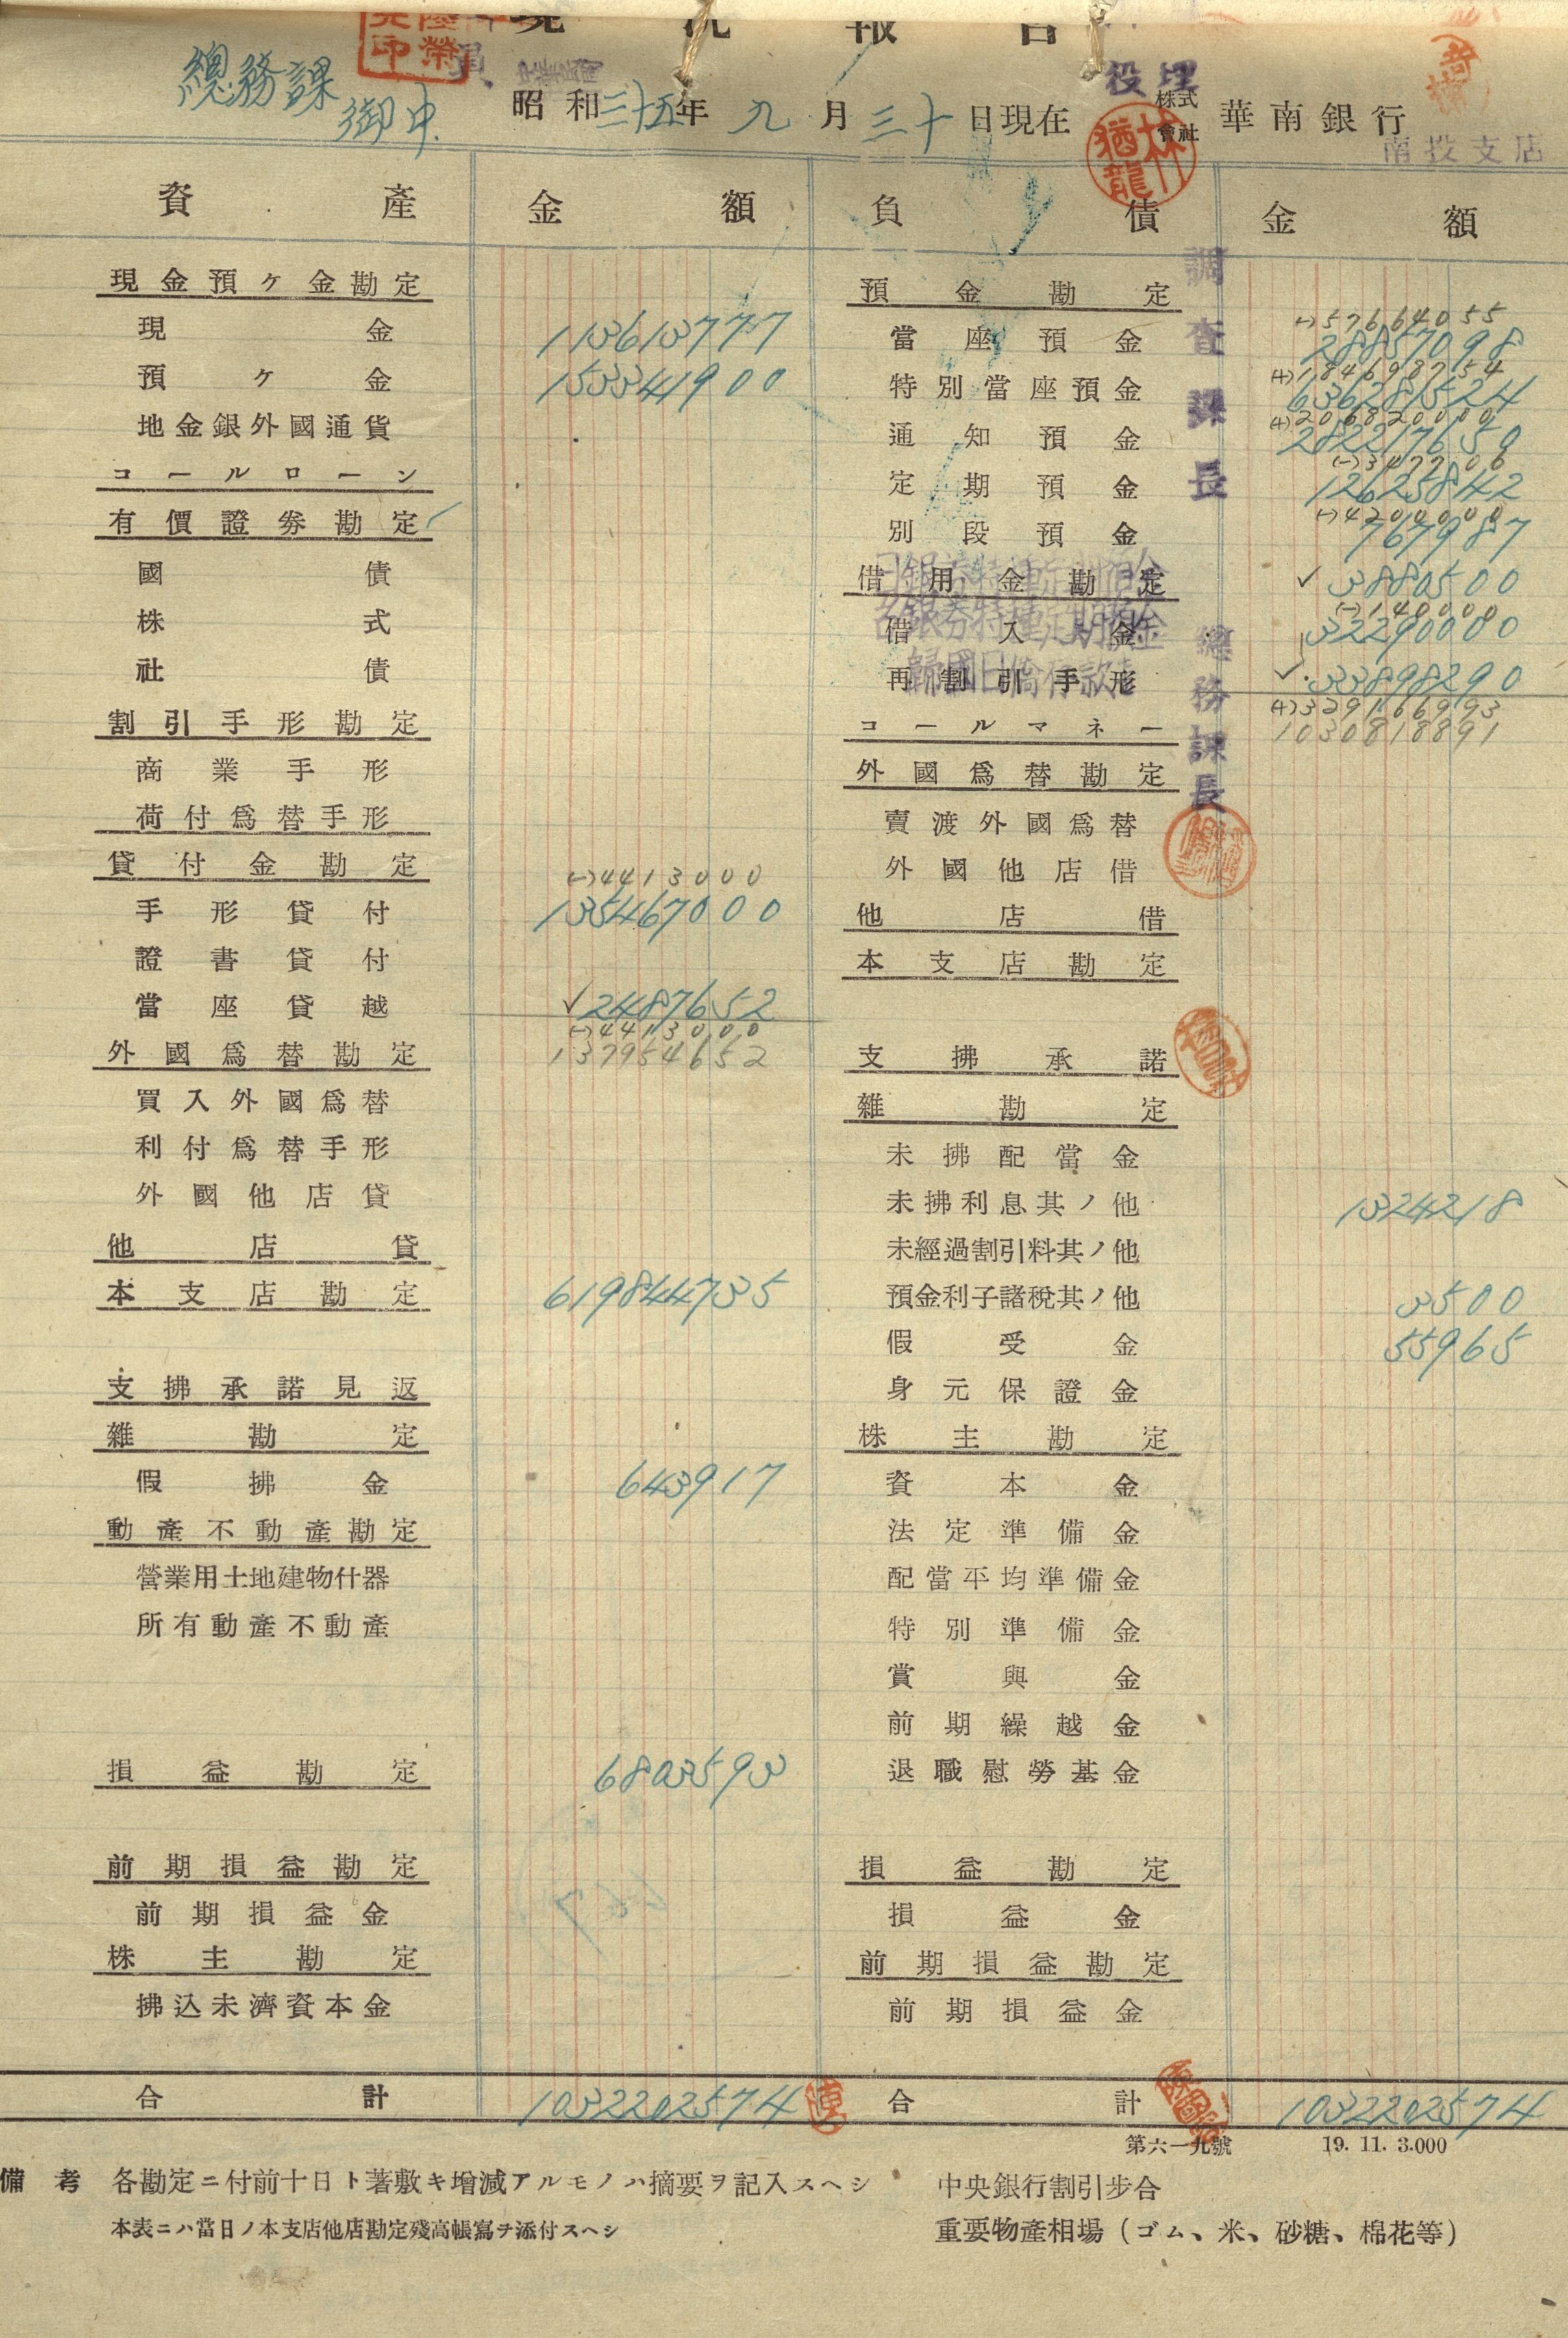 現況報告
總務課
御中
昭和三十五年九月三十日現在
株式會社 華南銀行
南投支店
資產 金額 負債 金額
現金預ケ金勘定
現金 113613777
預ケ金 153341900
地金銀外國通貨
コールローン
有價證券勘定
國債
株式
社債
割引手形勘定
商業手形
荷付爲替手形
貸付金勘定
(-)4413000
手形貸付 135467000
證書貸付
當座貸越 ✓2487652
(-)4413000
外國爲替勘定 137954652
買入外國爲替
利付爲替手形
外國他店貸
他店貸
本支店勘定 619844735
支拂承諾見返
雜勘定
假拂金 643917
動產不動產勘定
營業用土地建物什器
所有動產不動產
損益勘定 6803593
前期損益勘定
前期損益金
株主勘定
拂込未濟資本金
合計 1032202574
預金勘定
(-)57664055
當座預金 28857098
(+)184698754
特別當座預金 636281524
(+)206820000
通知預金 282217650
(-)347706
定期預金 12625842
(-)4200000
別段預金 767987
借用金勘定 ✓3880500
(-)140000
借入金 32290000
再割引手形 ✓33898290
(+)329166993
コールマネー 1030818891
外國爲替勘定
賣渡外國爲替
外國他店借
他店借
本支店勘定
支拂承諾
雜勘定
未拂配當金
未拂利息其ノ他 1324218
未經過割引料其ノ他
預金利子諸稅其ノ他 3500
假受金 55965
身元保證金
株主勘定
資本金
法定準備金
配當平均準備金
特別準備金
賞與金
前期繰越金
退職慰勞基金
損益勘定
損益金
前期損益勘定
前期損益金
合計 1032202574
調查課長
總務課長
林猶龍
歸國日僑存款
第六一九號 19. 11. 3.000
備考 各勘定ニ付前十日ト著敷キ增減アルモノハ摘要ヲ記入スヘシ
本表ニハ當日ノ本支店他店勘定殘高帳寫ヲ添付スヘシ
中央銀行割引步合
重要物產相場(ゴム、米、砂糖、棉花等)